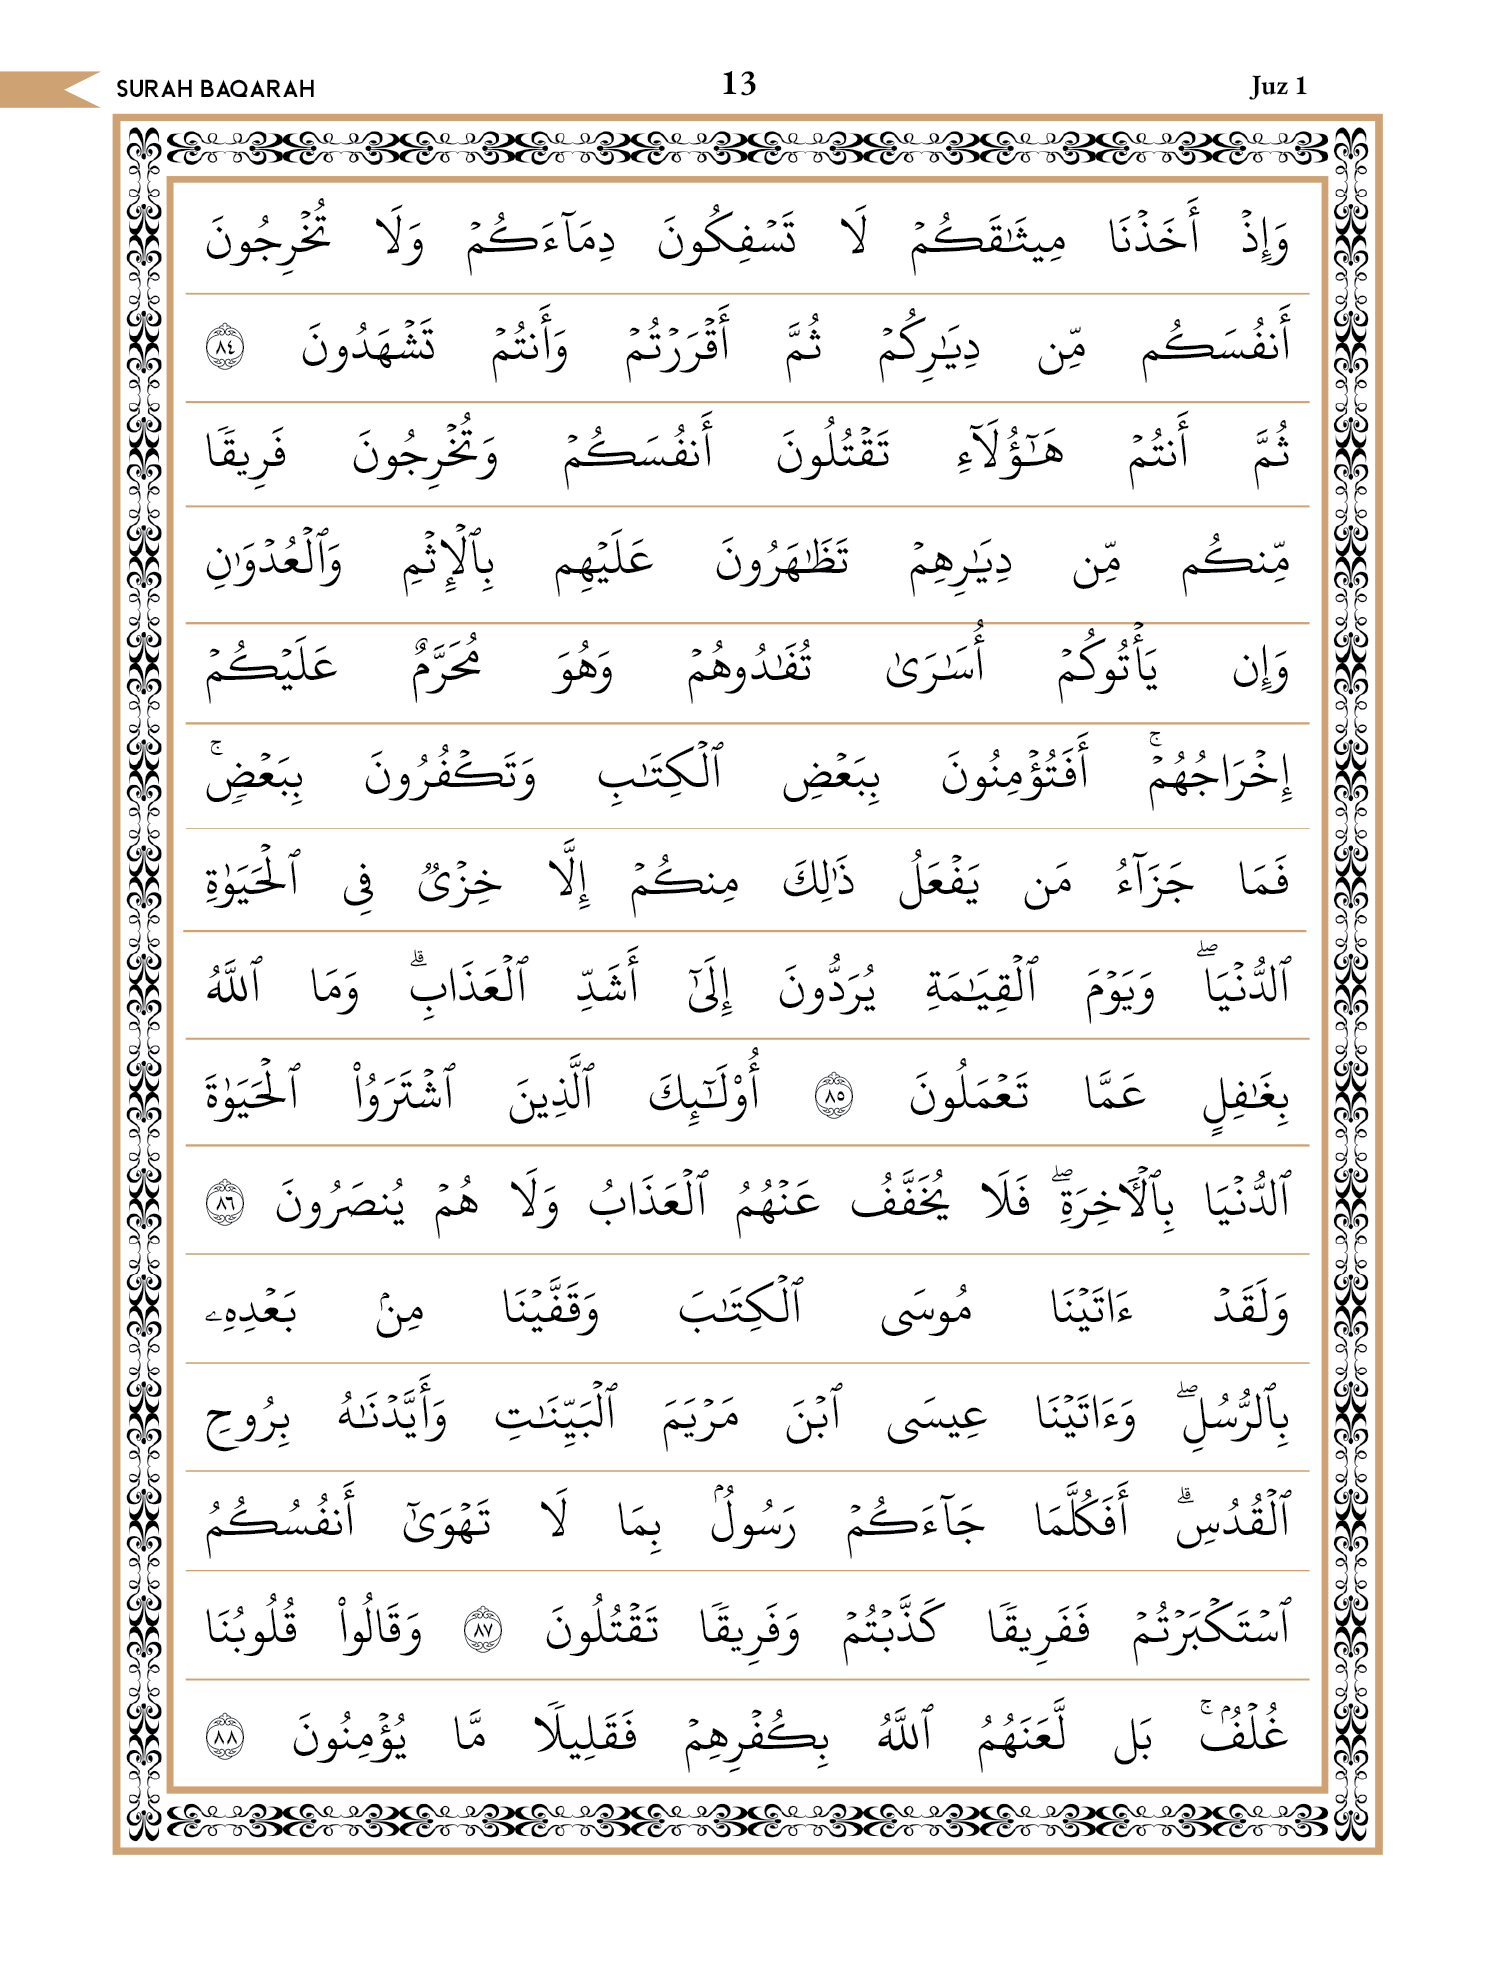 SURAH BAQARAH 13 Juz 1
وَإِذۡ أَخَذۡنَا مِيثَٰقَكُمۡ لَا تَسۡفِكُونَ دِمَآءَكُمۡ وَلَا تُخۡرِجُونَ
أَنفُسَكُم مِّن دِيَٰرِكُمۡ ثُمَّ أَقۡرَرۡتُمۡ وَأَنتُمۡ تَشۡهَدُونَ ٨٤
ثُمَّ أَنتُمۡ هَٰٓؤُلَآءِ تَقۡتُلُونَ أَنفُسَكُمۡ وَتُخۡرِجُونَ فَرِيقٗا
مِّنكُم مِّن دِيَٰرِهِمۡ تَظَٰهَرُونَ عَلَيۡهِم بِٱلۡإِثۡمِ وَٱلۡعُدۡوَٰنِ
وَإِن يَأۡتُوكُمۡ أُسَٰرَىٰ تُفَٰدُوهُمۡ وَهُوَ مُحَرَّمٌ عَلَيۡكُمۡ
إِخۡرَاجُهُمۡۚ أَفَتُؤۡمِنُونَ بِبَعۡضِ ٱلۡكِتَٰبِ وَتَكۡفُرُونَ بِبَعۡضٖۚ
فَمَا جَزَآءُ مَن يَفۡعَلُ ذَٰلِكَ مِنكُمۡ إِلَّا خِزۡيٞ فِي ٱلۡحَيَوٰةِ
ٱلدُّنۡيَاۖ وَيَوۡمَ ٱلۡقِيَٰمَةِ يُرَدُّونَ إِلَىٰٓ أَشَدِّ ٱلۡعَذَابِۗ وَمَا ٱللَّهُ
بِغَٰفِلٍ عَمَّا تَعۡمَلُونَ ٨٥ أُوْلَٰٓئِكَ ٱلَّذِينَ ٱشۡتَرَوُاْ ٱلۡحَيَوٰةَ
ٱلدُّنۡيَا بِٱلۡأٓخِرَةِۖ فَلَا يُخَفَّفُ عَنۡهُمُ ٱلۡعَذَابُ وَلَا هُمۡ يُنصَرُونَ ٨٦
وَلَقَدۡ ءَاتَيۡنَا مُوسَى ٱلۡكِتَٰبَ وَقَفَّيۡنَا مِنۢ بَعۡدِهِۦ
بِٱلرُّسُلِۖ وَءَاتَيۡنَا عِيسَى ٱبۡنَ مَرۡيَمَ ٱلۡبَيِّنَٰتِ وَأَيَّدۡنَٰهُ بِرُوحِ
ٱلۡقُدُسِۗ أَفَكُلَّمَا جَآءَكُمۡ رَسُولُۢ بِمَا لَا تَهۡوَىٰٓ أَنفُسُكُمُ
ٱسۡتَكۡبَرۡتُمۡ فَفَرِيقٗا كَذَّبۡتُمۡ وَفَرِيقٗا تَقۡتُلُونَ ٨٧ وَقَالُواْ قُلُوبُنَا
غُلۡفُۢۚ بَل لَّعَنَهُمُ ٱللَّهُ بِكُفۡرِهِمۡ فَقَلِيلٗا مَّا يُؤۡمِنُونَ ٨٨